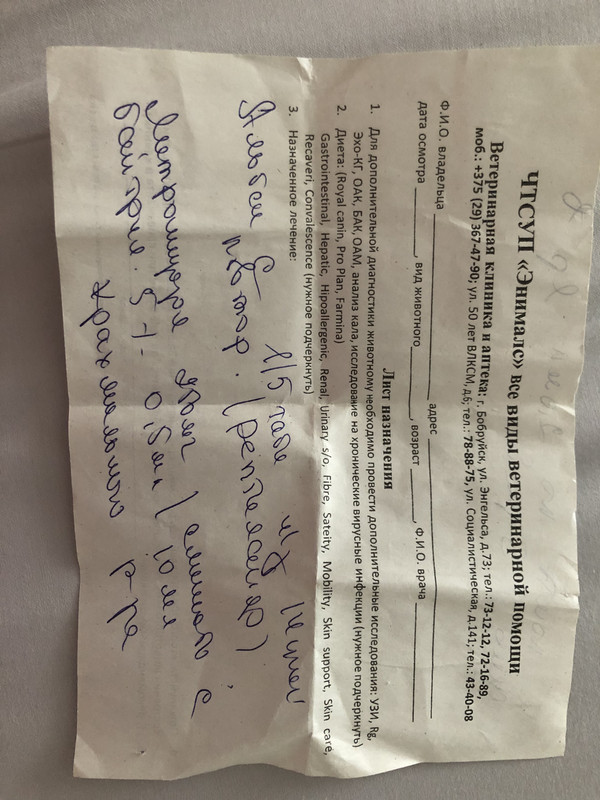 ЧТСУП «Энималс» все виды ветеринарной помощи
Ветеринарная клиника и аптека: г. Бобруйск, ул. Энгельса, д.73; тел.: 73-12-12, 72-16-89,
моб.: +375 (29) 367-47-90; ул. 50 лет ВЛКСМ, д.6; тел.: 78-88-75, ул. Социалистическая, д.141; тел.: 43-40-08
Ф.И.О. владельца адрес
дата осмотра , вид животного , возраст , Ф.И.О. врача
Лист назначения
1. Для дополнительной диагностики животному необходимо провести дополнительные исследования: УЗИ, Rg,
Эхо-КГ, ОАК, БАК, ОАМ, анализ кала, исследование на хронические вирусные инфекции (нужное подчеркнуть)
2. Диета: (Royal canin, Pro Plan, Farmina)
Gastrointestinal, Hepatic, Hipoallergenic, Renal, Urinary s/o, Fibre, Sateity, Mobility, Skin support, Skin care,
Recaveri, Convalescence (нужное подчеркнуть)
3. Назначенное лечение:
1/5 табл
(рептилайф)
0,5мл / смешать с
байтрил 5%- 10 мл
р-ра